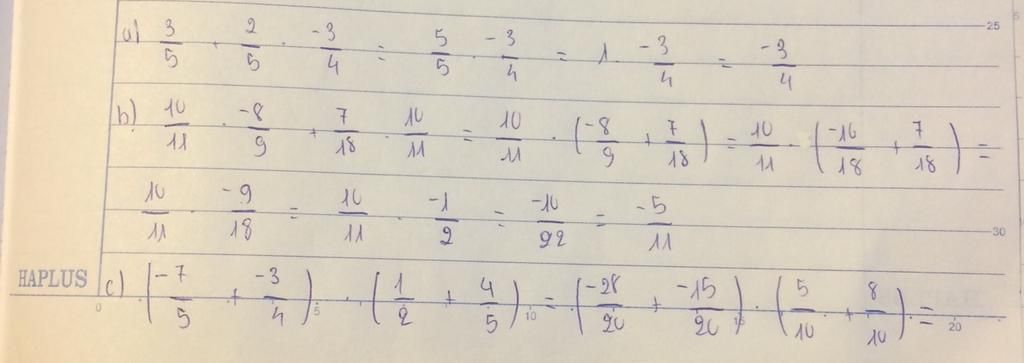 a) 3/5 + 2/5 · -3/4 = 5/5 · -3/4 = 1 · -3/4 = -3/4
25
b) 10/11 · -8/9 + 7/18 · 10/11 = 10/11 · (-8/9 + 7/18) = 10/11 · (-16/18 + 7/18) =
10/11 · -9/18 = 10/11 · -1/2 = -10/22 = -5/11
30
HAPLUS
c) (-7/5 + -3/4) · (1/2 + 4/5) = (-28/20 + -15/20) · (5/10 + 8/10) =
0 5 10 15 20